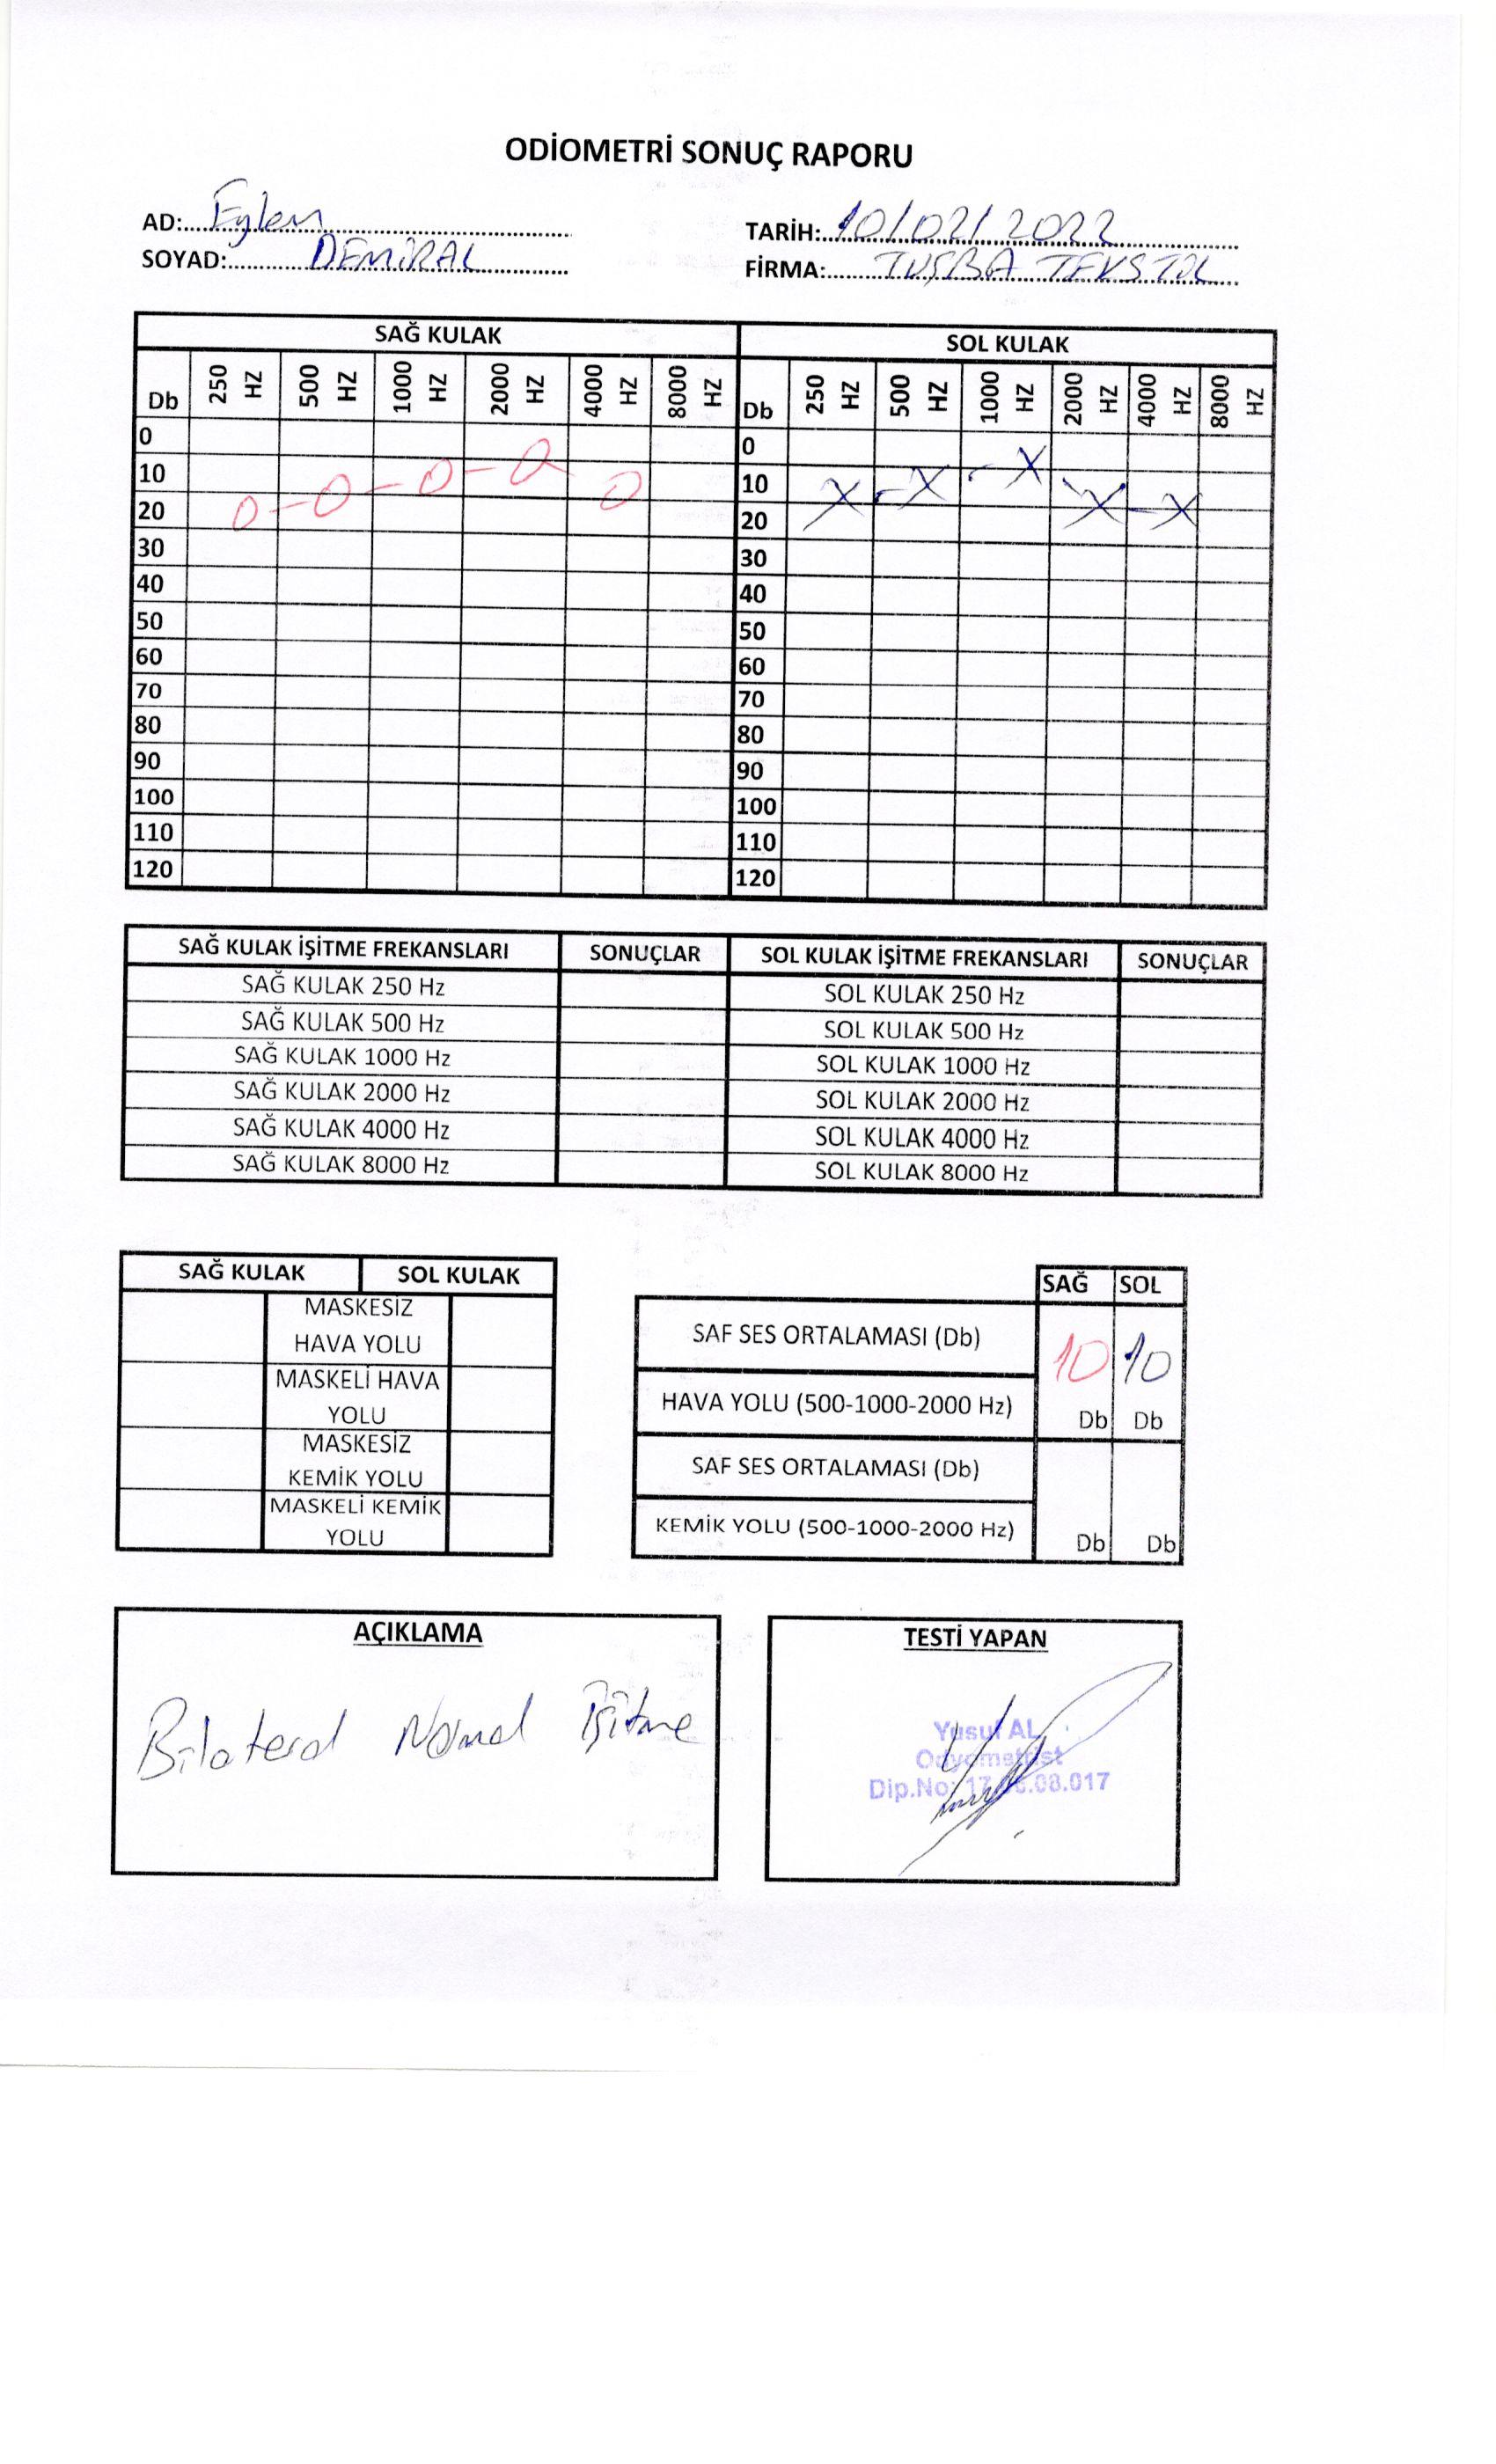 ODİOMETRİ SONUÇ RAPORU
AD: Eylem
TARİH: 10/02/2022
SOYAD: DEMİRAL
FİRMA: TUŞBA TEKSTİL
SAĞ KULAK SOL KULAK
Db 250 HZ 500 HZ 1000 HZ 2000 HZ 4000 HZ 8000 HZ Db 250 HZ 500 HZ 1000 HZ 2000 HZ 4000 HZ 8000 HZ
0 0
10 10
20 20
30 30
40 40
50 50
60 60
70 70
80 80
90 90
100 100
110 110
120 120
SAĞ KULAK İŞİTME FREKANSLARI SONUÇLAR SOL KULAK İŞİTME FREKANSLARI SONUÇLAR
SAĞ KULAK 250 Hz SOL KULAK 250 Hz
SAĞ KULAK 500 Hz SOL KULAK 500 Hz
SAĞ KULAK 1000 Hz SOL KULAK 1000 Hz
SAĞ KULAK 2000 Hz SOL KULAK 2000 Hz
SAĞ KULAK 4000 Hz SOL KULAK 4000 Hz
SAĞ KULAK 8000 Hz SOL KULAK 8000 Hz
SAĞ KULAK SOL KULAK
MASKESİZ
HAVA YOLU
MASKELİ HAVA
YOLU
MASKESİZ
KEMİK YOLU
MASKELİ KEMİK
YOLU
SAĞ SOL
SAF SES ORTALAMASI (Db) 10 10
HAVA YOLU (500-1000-2000 Hz) Db Db
SAF SES ORTALAMASI (Db)
KEMİK YOLU (500-1000-2000 Hz) Db Db
AÇIKLAMA
Bilateral Normal İşitme
TESTİ YAPAN
Yusuf AL
Odyometrist
Dip.No: